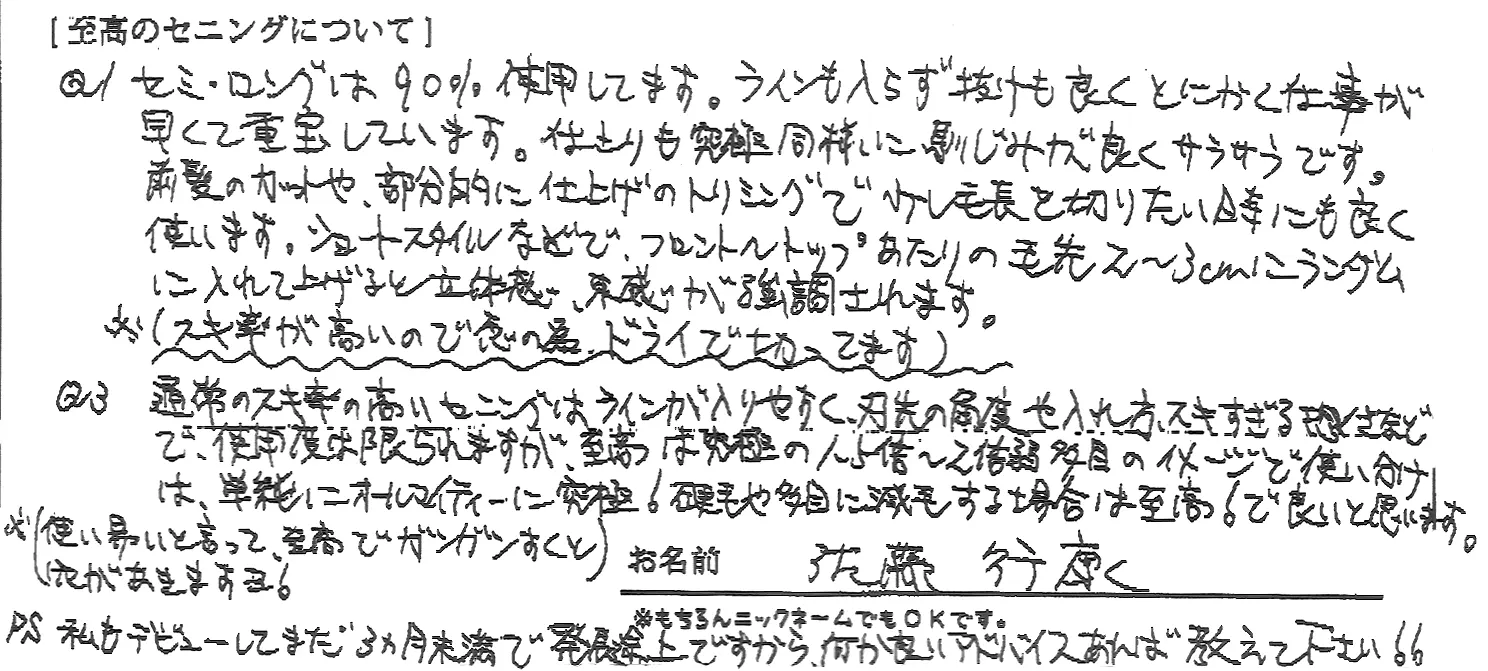 [至高のセニングについて]
Q1 セミ・ロングは90%使用してます。ラインも入らず抜けも良くとにかく仕事が
早くて重宝しています。仕上りも究極同様に馴じみが良くサラサラです。
前髪のカットや、部分的に仕上げのトリミングで少し毛長を切りたい時にも良く
使います。ショートスタイルなどで、フロント〜トップあたりの毛先2〜3cmにランダム
に入れて上げると立体感、束感が強調されます。
※(スキ率が高いので念の為、ドライで切ってます)
Q3 通常のスキ率の高いセニングはラインが入りやすく、刃先の角度や入れ方、スキすぎる
で、使用度は限られますが、至高は究極の1.5倍〜2倍弱多目のイメージで使い分け
は、単純にオールマイティーに究極! 硬毛や多目に減毛する場合は至高!で良いと思います。
※(使い易いと言って、至高でガンガンすくと
穴があきますヨ!)
お名前 佐藤 行康
※もちろんニックネームでもOKです。
PS 私もデビューしてまだ3ヵ月未満で発展途上ですから、何か良いアドバイスあれば教えて下さい!!